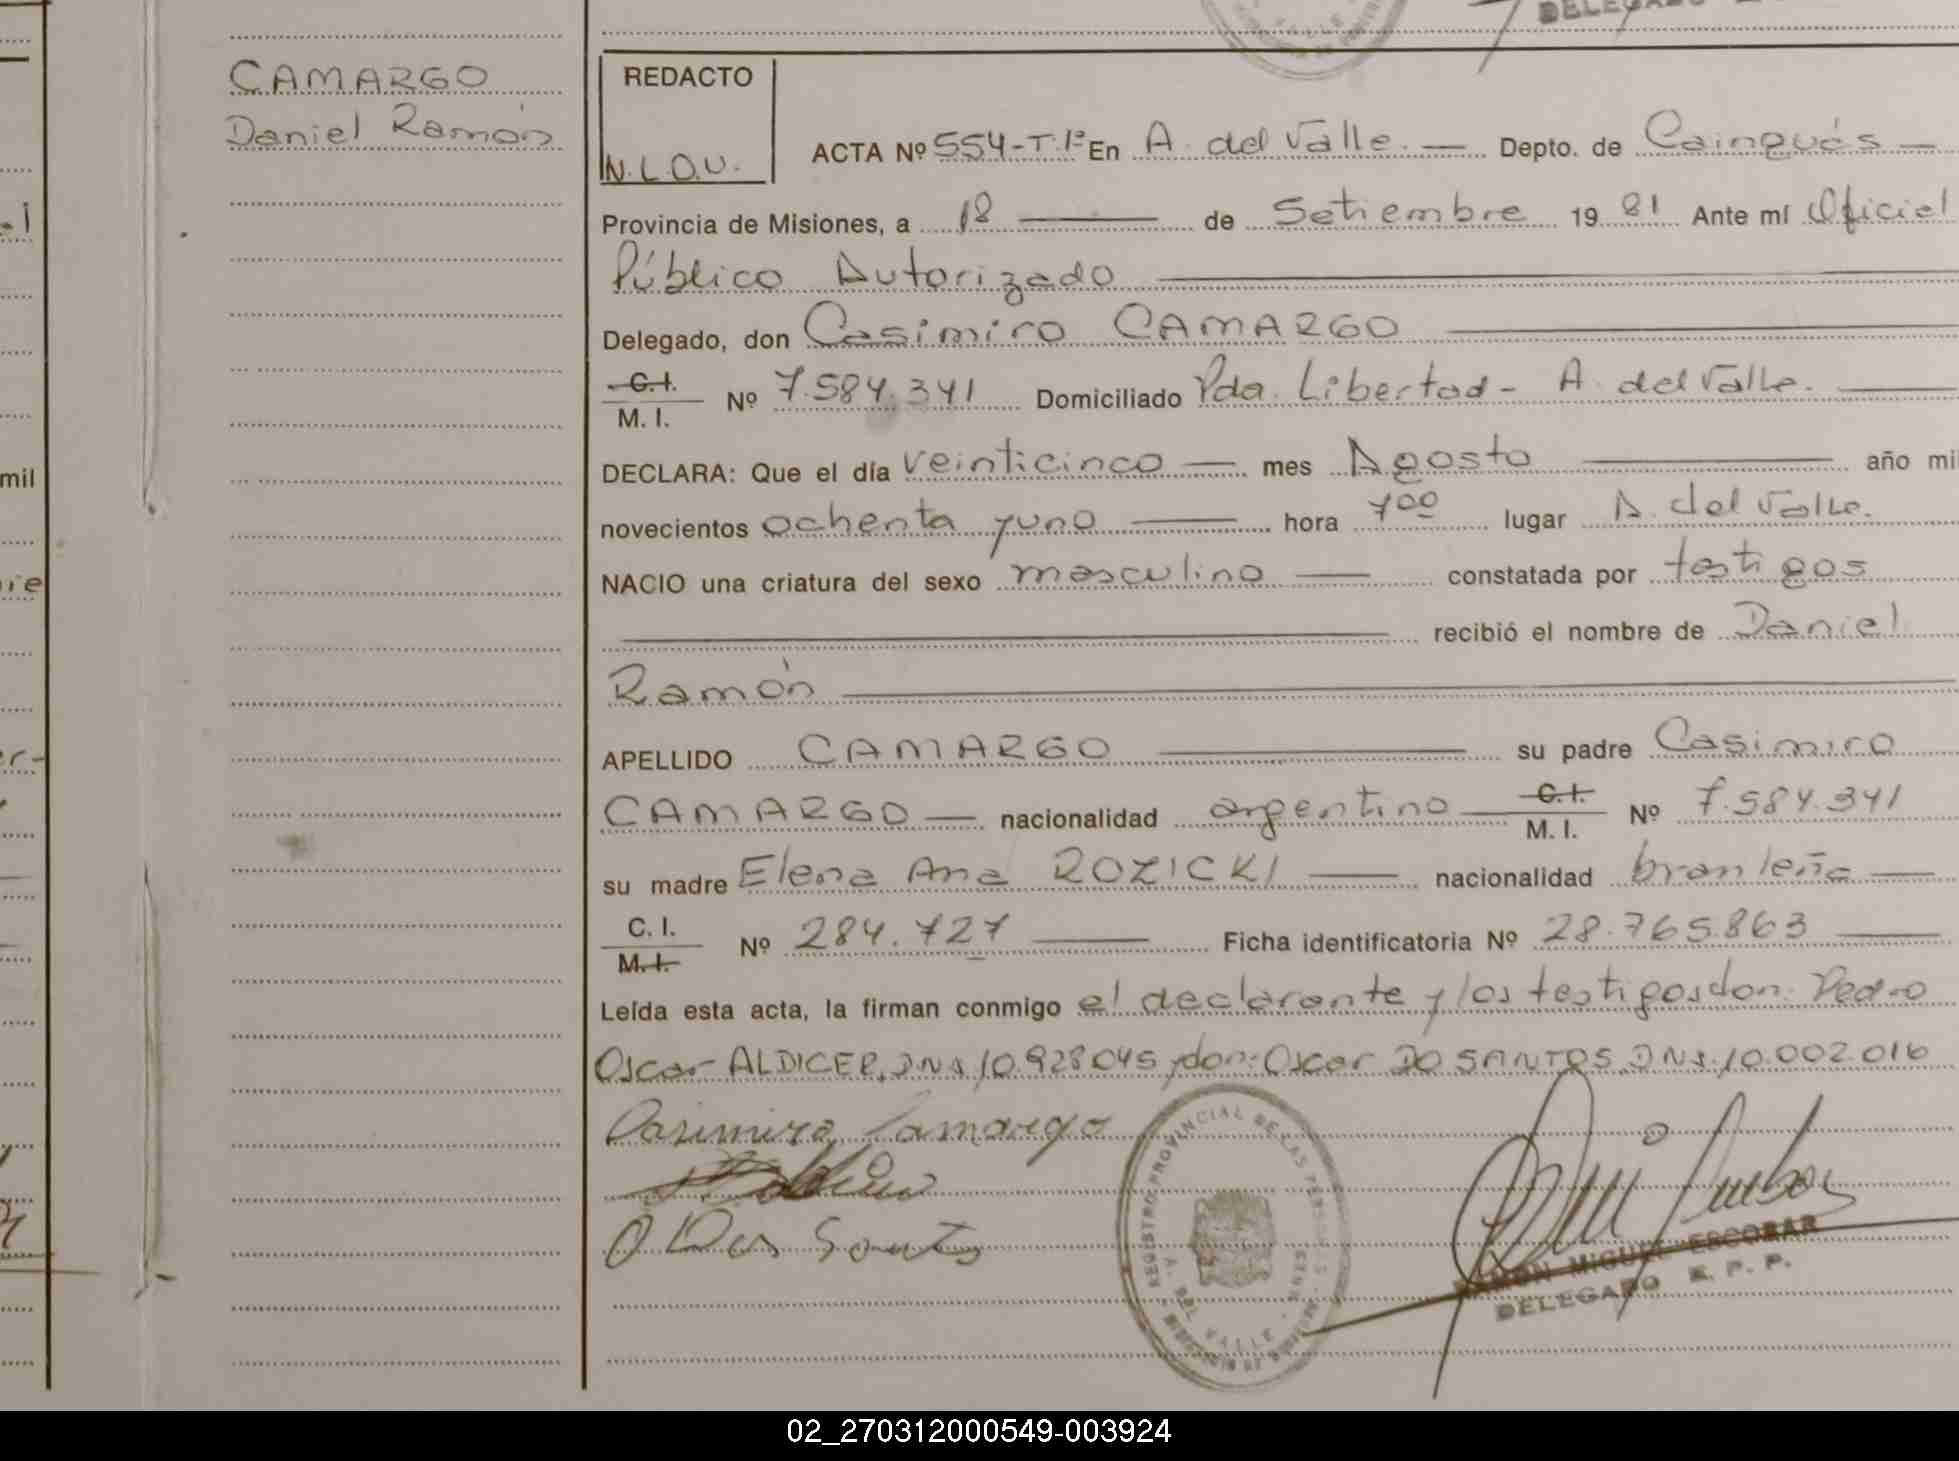 CAMARGO
Daniel Ramón
REDACTO
N.L.O.V.
ACTA Nº 554-T.1º En A. del Valle. — Depto. de Cainguás —
Provincia de Misiones, a 18 — de Setiembre 1981 Ante mí Oficial
Público Autorizado
Delegado, don Casimiro CAMARGO
C.I.
M. I. Nº 7.584.341 Domiciliado Pda. Libertad - A. del Valle.
DECLARA: Que el día veinticinco — mes Agosto — año mil
novecientos ochenta y uno — hora 7 00 lugar A. del Valle.
NACIO una criatura del sexo masculino — constatada por testigos
recibió el nombre de Daniel
Ramón
APELLIDO CAMARGO — su padre Casimiro
CAMARGO — nacionalidad argentino — C.I. M. I. Nº 7.584.341
su madre Elena Ana ROZICKI — nacionalidad brasileña —
C. I.
M.I. Nº 284.727 — Ficha identificatoria Nº 28.765.863 —
Leída esta acta, la firman conmigo el declarante y los testigos don: Pedro
Oscar ALDICER, DNI 10.928045 y don: Oscar DO SANTOS, DNI. 10.002.016
Casimiro Camargo
O. Dos Santos
REGISTRO PROVINCIAL DE LAS PERSONAS
A. DEL VALLE
RAMON MIGUEL ESCOBAR
DELEGADO R. P. P.
mil
02_270312000549-003924